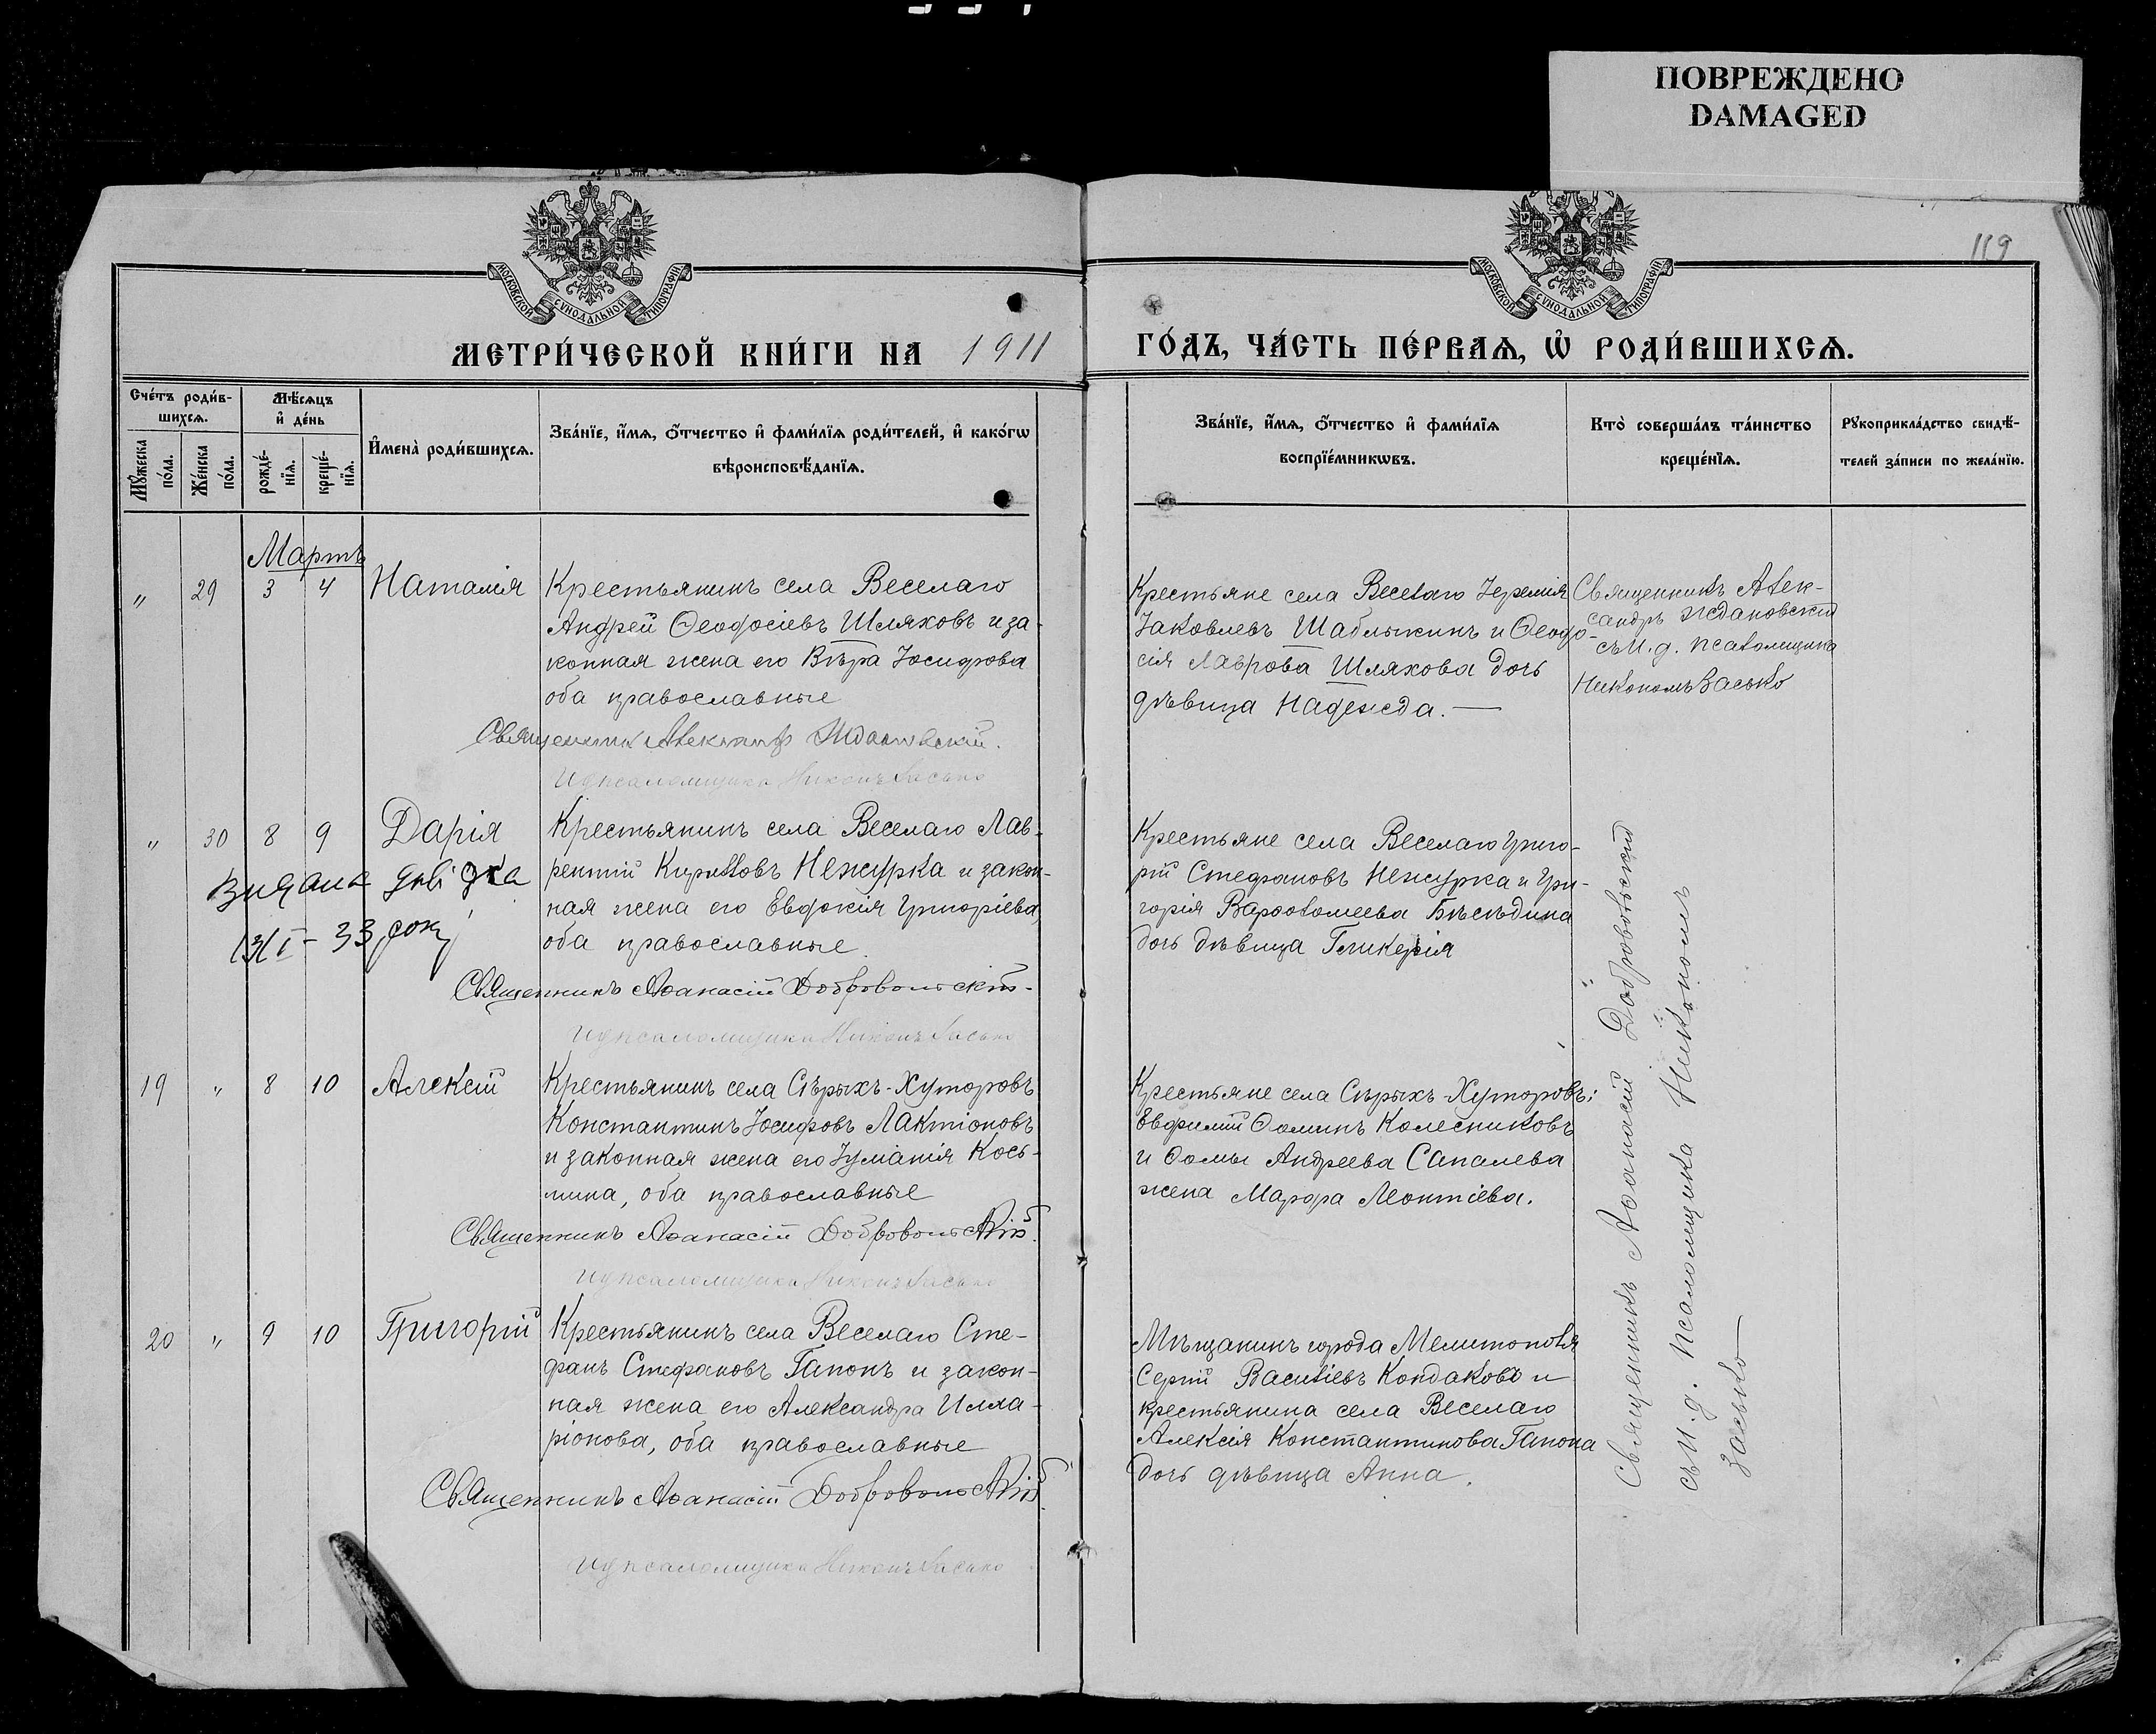 ПОВРЕЖДЕНО
DAMAGED
119
МОСКОВСКОЙ СУНОДАЛЬНОЙ ТИПОГРАФІИ
МОСКОВСКОЙ СУНОДАЛЬНОЙ ТИПОГРАФІИ
МЕТРИ́ЧЕСКОЙ КНИ́ГИ НА 1911
ГО́ДЪ, ЧА́СТЬ ПЕ́РВАѦ, Ѡ҆ РОДИ́ВШИХСѦ.
Сче́тъ роди́в-
шихсѧ.
Мꙋ́жеска по́ла.
Же́нска по́ла.
Мѣ́сѧцъ
и҆ де́нь
рожде́-
нїѧ.
креще́-
нїѧ.
И҆мена̀ роди́вшихсѧ.
Зва́нїе, и҆́мѧ, ѻ҆́тчество и҆ фами́лїѧ роди́телей, и҆ како́гѡ
вѣроисповѣ́данїѧ.
Зва́нїе, и҆́мѧ, ѻ҆́тчество и҆ фами́лїѧ
воспрїе́мникѡвъ.
Кто̀ соверша́лъ та́инство
креще́нїѧ.
Рꙋкоприкла́дство свидѣ́-
телей за́писи по жела́нїю.
Мартъ
" 29 3 4 Наталія
Крестьянинъ села Веселаго
Андрей Ѳеодосіевъ Шляховъ и за-
конная жена его Вѣра Іосифова
оба православные
Священникъ Александръ Ждановскій.
И д псаломщика Никонъ Засько
Крестьяне села Веселаго Іеремія
Іаковлевъ Шаблыкинъ и Ѳеодо-
сія Лаврова Шляхова дочь
дѣвица Надежда.—
Священникъ Алек-
сандръ Ждановскій
съ И. д. псаломщика
Никономъ Засько
" 30 8 9 Дарія
видана довідка
13/I - 33 року
Крестьянинъ села Веселаго Лав-
рентій Кирилловъ Нежурка и закон-
ная жена его Евдокія Григоріева,
оба православные.
Священникъ Аѳанасій Добровольскій.
И д псаломщика Никонъ Засько
Крестьяне села Веселаго Григо-
рій Стефановъ Нежурка и Гри-
горія Варѳоломеева Бѣсѣдина
дочь дѣвица Гликерія
19 " 8 10 Алексій
Крестьянинъ села Сѣрыхъ-Хуторовъ
Константинъ Іосифовъ Лактіоновъ
и законная жена его Іуліанія Кось-
мина, оба православные
Священникъ Аѳанасій Добровольскій.
И д псаломщика Никонъ Засько
Крестьяне села Сѣрыхъ-Хуторовъ:
Евфимій Ѳоминъ Колесниковъ
и Ѳомы Андреева Сапалева
жена Марфа Леонтіева.
20 " 9 10 Григорій
Крестьянинъ села Веселаго Сте-
фанъ Стефановъ Гапонъ и закон-
ная жена его Александра Илла-
ріонова, оба православные
Священникъ Аѳанасій Добровольскій.
И д псаломщика Никонъ Засько
Мѣщанинъ города Мелитополя
Сергій Василіевъ Кондаковъ и
крестьянина села Веселаго
Алексія Константинова Гапона
дочь дѣвица Анна.
Священникъ Аѳанасій Добровольскій
съ И. д. псаломщика Никономъ
Засько